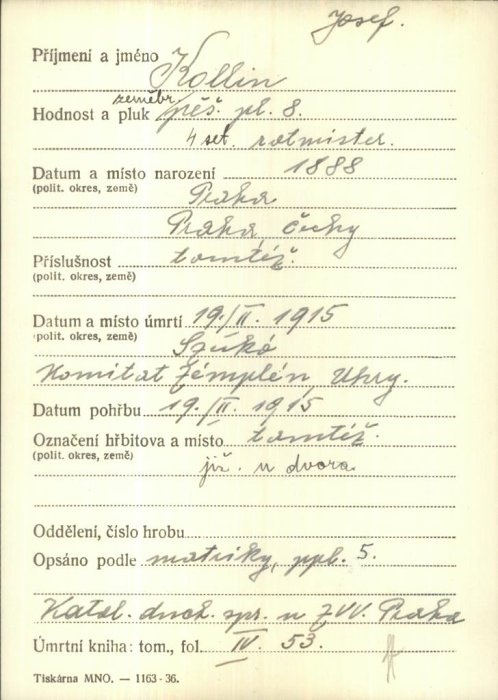 Josef.
Příjmení a jméno Kollin
zeměbr.
Hodnost a pluk pěš. pl. 8.
4 set. rotmister.
Datum a místo narození 1888
(polit. okres, země)
Praha
Praha, Čechy
Příslušnost tamtéž.
(polit. okres, země)
Datum a místo úmrtí 19./II. 1915
(polit. okres, země)
Szúkó
Komitat Zémplén, Uhry.
Datum pohřbu 19./II. 1915
Označení hřbitova a místo tamtéž.
(polit. okres, země)
již. u dvora
Oddělení, číslo hrobu
Opsáno podle matriky, ppl. 5.
Katol. duch. spr. u ZVV. Praha
Úmrtní kniha: tom., fol. IV. 53.
Tiskárna MNO. — 1163-36.